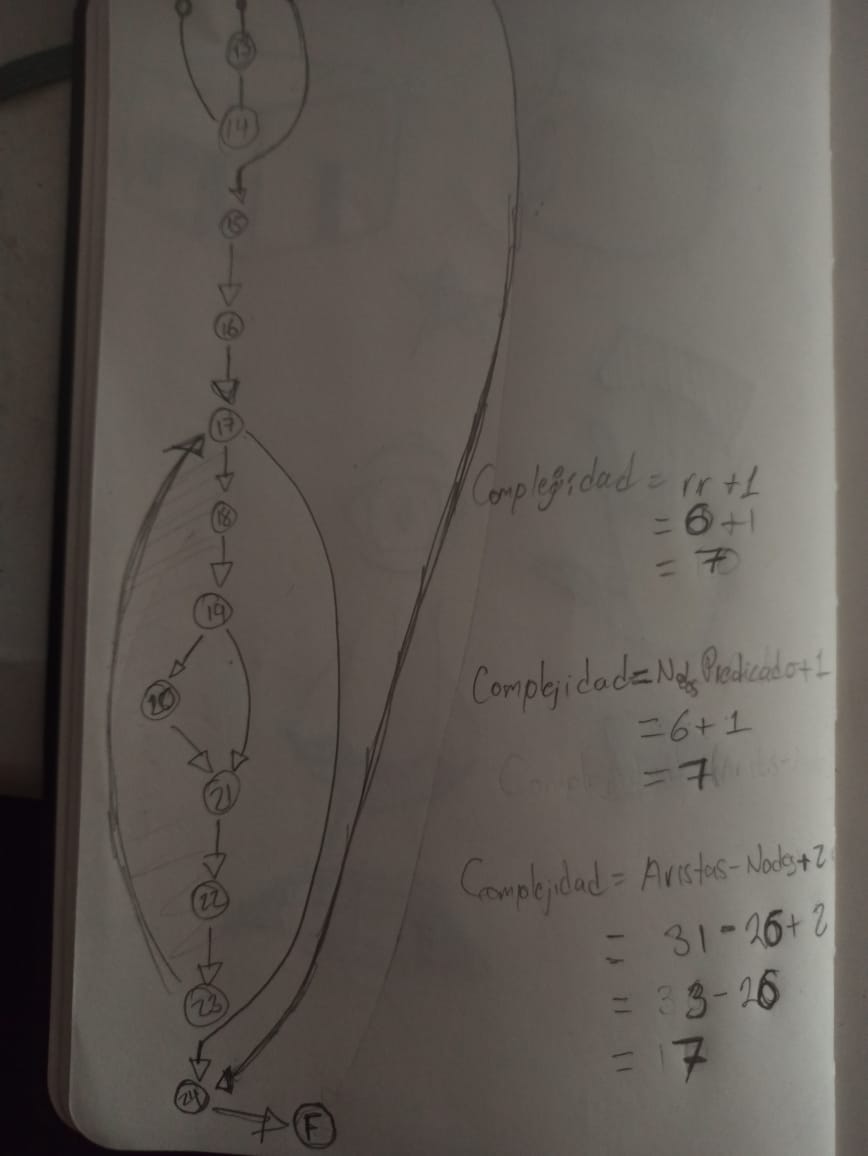 13
14
15
16
17
18
19
20
21
22
23
24
F
Complegidad = rr +1
= 6+1
= 7
Complejidad= Nodos Predicado+1
= 6+1
= 7
Complejidad = Aristas-Nodos+2
= 31-26+2
= 33-26
= 7